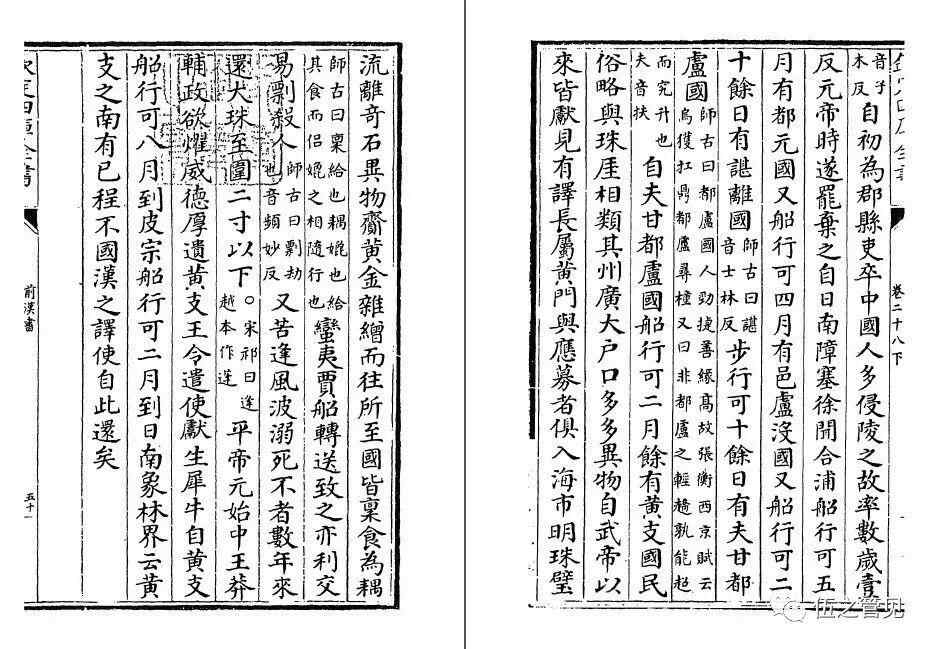 卷二十八下
音子
本反
自初為郡縣吏卒中國人多侵陵之故率數歲壹
反元帝時遂罷棄之自日南障塞徐開合浦船行可五
月有都元國又船行可四月有邑盧沒國又船行可二
十餘日有諶離國
師古曰諶
音士林反
步行可十餘日有夫甘都
盧國
師古曰都盧國人勁捷善緣高故張衡西京賦云
烏獲扛鼎都盧尋橦又曰非都盧之輕趫孰能超
而究升也
夫音扶
自夫甘都盧國船行可二月餘有黃支國民
俗略與珠厓相類其州廣大戶口多多異物自武帝以
來皆獻見有譯長屬黃門與應募者俱入海市明珠璧
流離奇石異物齎黃金雜繒而往所至國皆稟食為耦
師古曰稟給也耦媲也給
其食而侶媲之相隨行也
蠻夷賈船轉送致之亦利交
易剽殺人
師古曰剽劫
也音頻妙反
又苦逢風波溺死不者數年來
還大珠至圍二寸以下。
宋祁曰逢
越本作蓬
平帝元始中王莽
輔政欲燿威德厚遺黃支王令遣使獻生犀牛自黃支
船行可八月到皮宗船行可二月到日南象林界云黃
支之南有已程不國漢之譯使自此還矣
前漢書
五十一
伍之管见